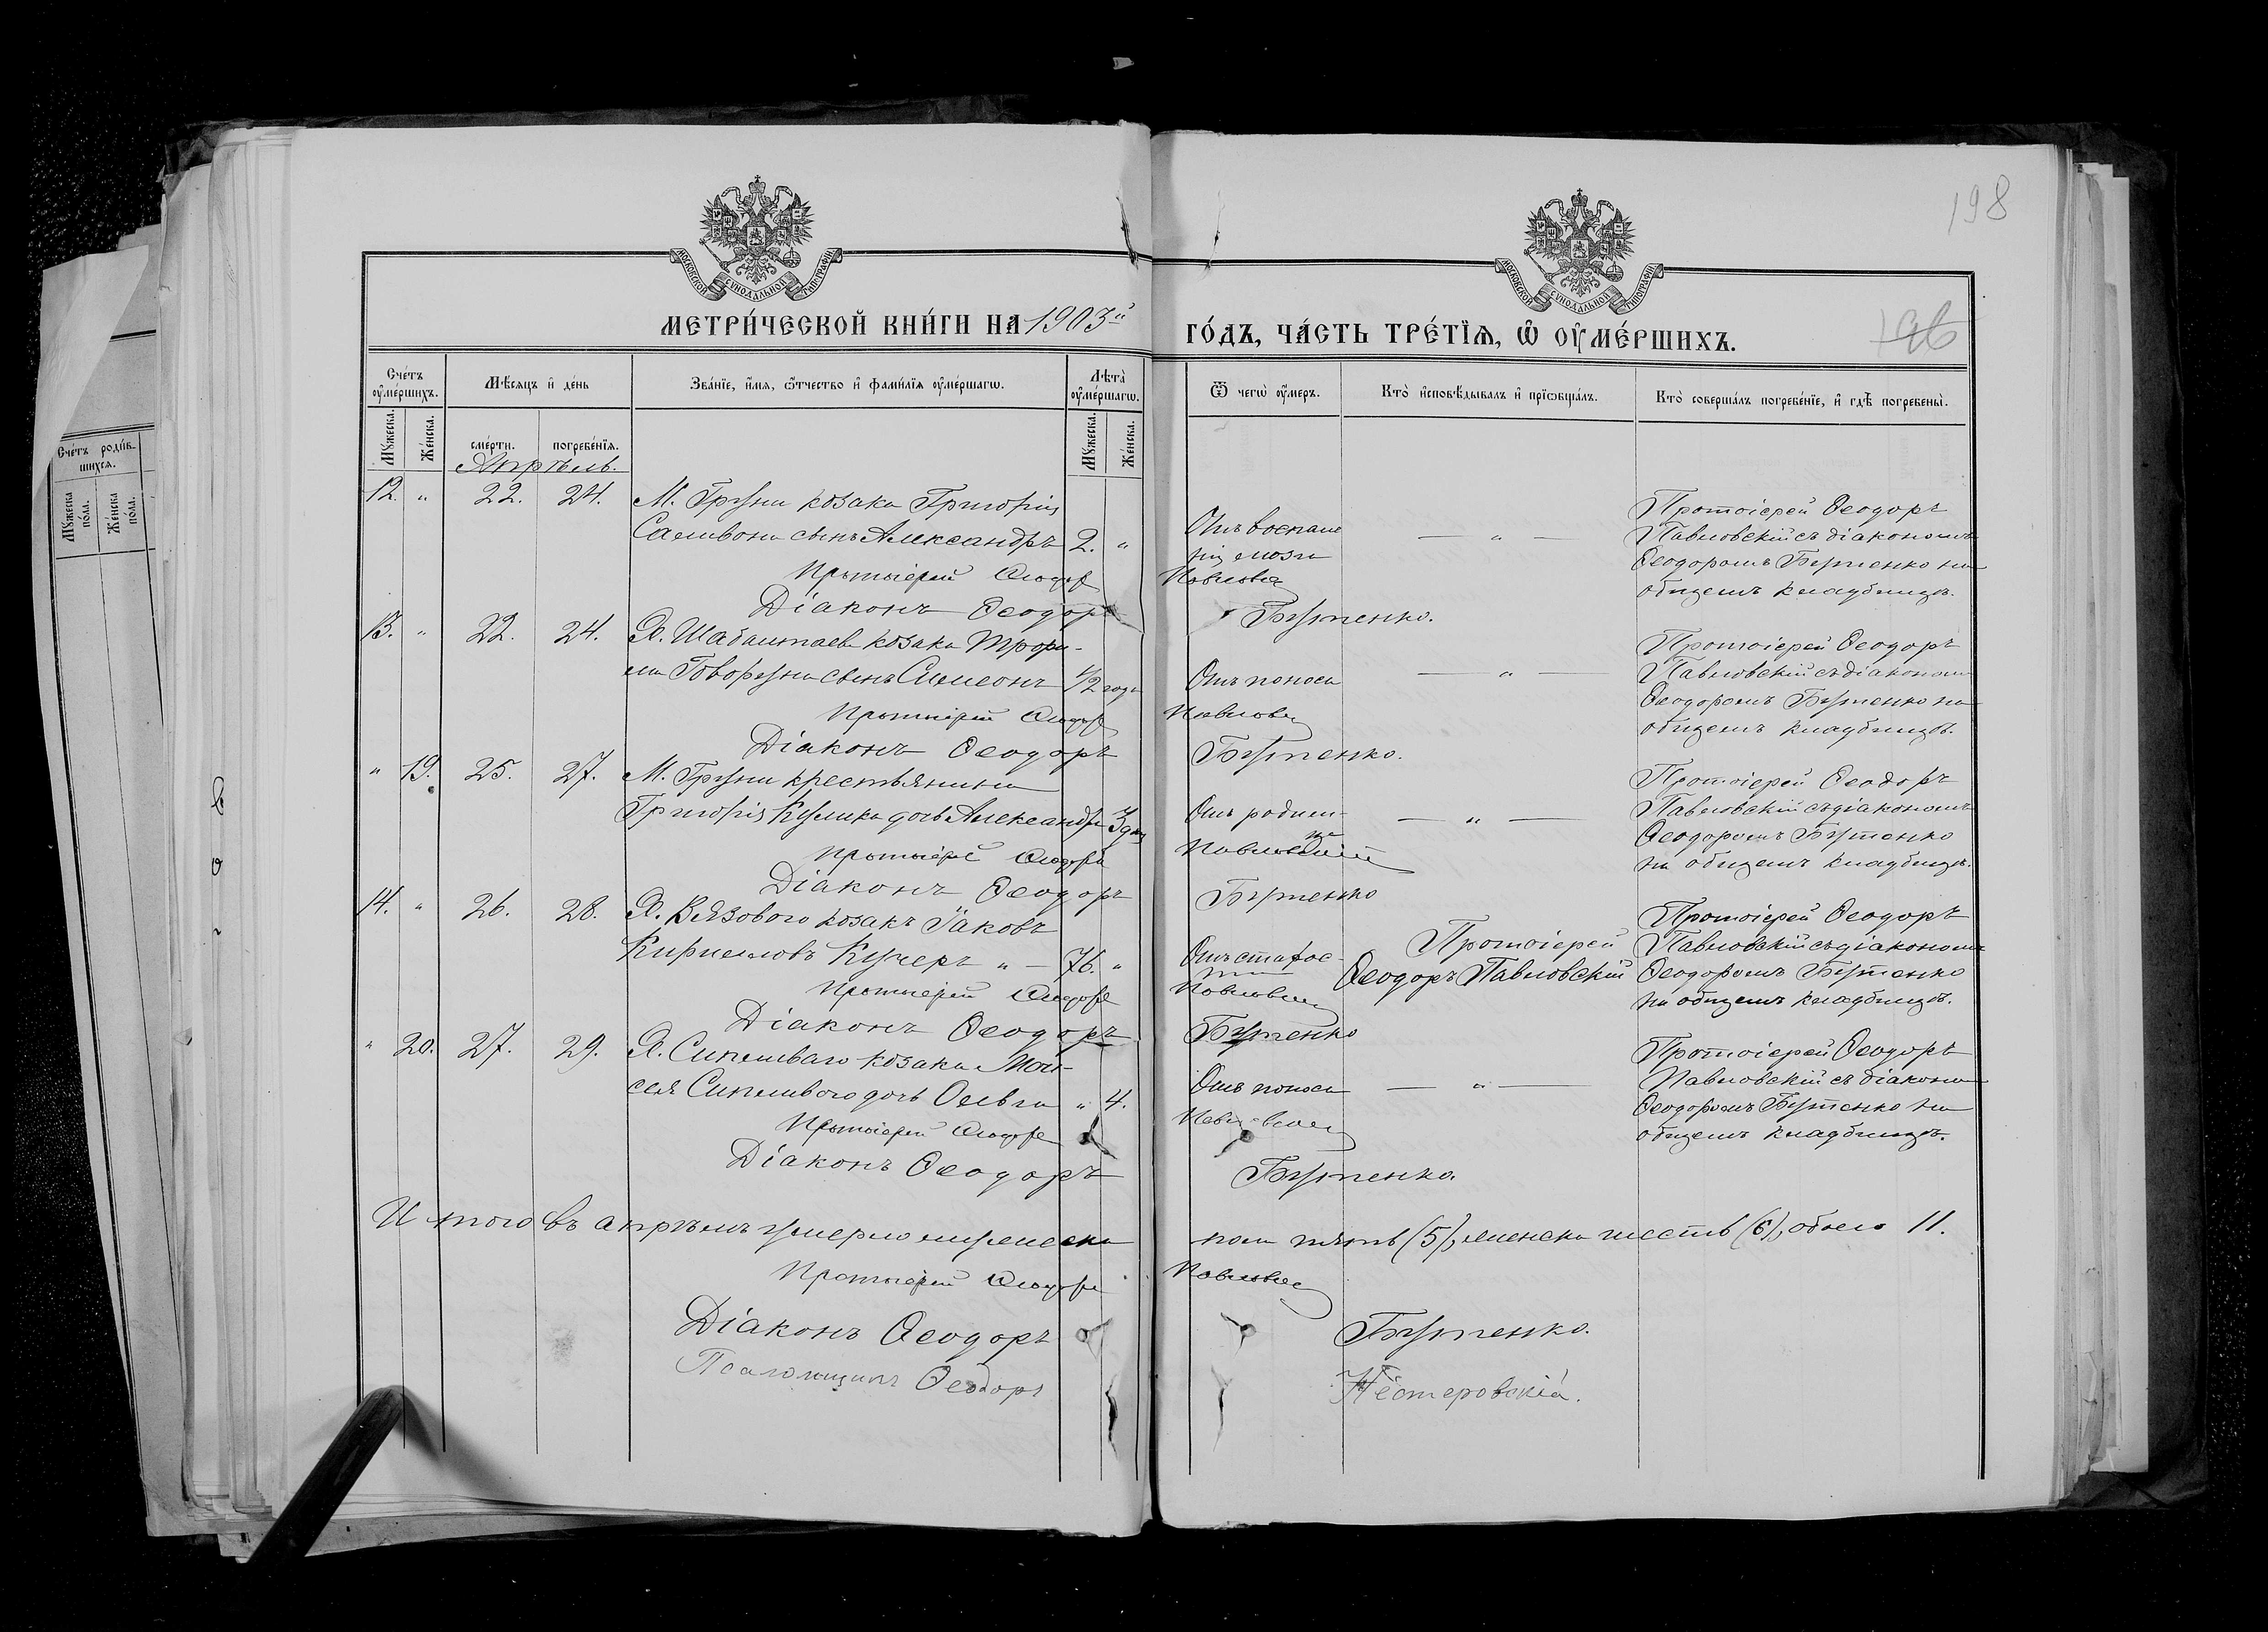 198
МОСКОВСКОЙ СУНОДАЛЬНОЙ ТИПОГРАФІИ
МОСКОВСКОЙ СУНОДАЛЬНОЙ ТИПОГРАФІИ
МЕТРИ́ЧЕСКОЙ КНИ́ГИ НА 1903й ГО́ДЪ, ЧА́СТЬ ТРЕ́ТЇѦ, Ѡ҆ ОУ҆МЕ́РШИХЪ.
196
Сче́тъ оу҆ме́ршихъ.
Мꙋ́жеска.
Же́нска.
Мѣ́сѧцъ и҆ де́нь
сме́рти.
погребе́нїѧ.
Зва́нїе, и҆́мѧ, ѻ҆́тчество и҆ фами́лїѧ оу҆ме́ршагѡ.
Лѣта̀ оу҆ме́ршагѡ.
Мꙋ́жеска.
Же́нска.
Ѿ чегѡ̀ оу҆́меръ.
Кто̀ и҆сповѣ́дывалъ и҆ прїѡбща́лъ.
Кто̀ соверша́лъ погребе́нїе, и҆ гдѣ̀ погребены̀.
Апрѣль.
12. " 22. 24. М. Груни козака Григорія
Саливона сынъ Александръ 2. "
Отъ воспале
нія мозга
— " —
Протоіерей Ѳеодоръ
Павловскій съ діакономъ
Ѳеодоромъ Бутенко на
общемъ кладбищѣ.
Протоіерей Ѳеодоръ Павловскій
Діаконъ Ѳеодоръ Бутенко.
13. " 22. 24. Х. козака Трофи-
ма Говоруна сынъ Симеонъ 1/2 года
Отъ поноса
— " —
Протоіерей Ѳеодоръ
Павловскій съ діакономъ
Ѳеодоромъ Бутенко на
общемъ кладбищѣ.
Протоіерей Ѳеодоръ Павловскій
Діаконъ Ѳеодоръ Бутенко.
" 19. 25. 27. М. Груни крестьянина
Григорія Кулика дочь Александра 3 дня
Отъ родим-
— " —
Протоіерей Ѳеодоръ
Павловскій съ діакономъ
Ѳеодоромъ Бутенко
на общемъ кладбищѣ.
Протоіерей Ѳеодоръ Павловскій
Діаконъ Ѳеодоръ Бутенко
14. " 26. 28. Х. Вязового козакъ Іаковъ
Кирилловъ Кучеръ " — 76. "
Отъ старос-
ти
Протоіерей
Ѳеодоръ Павловскій
Протоіерей Ѳеодоръ
Павловскій съ діакономъ
Ѳеодоромъ Бутенко
на общемъ кладбищѣ.
Протоіерей Ѳеодоръ Павловскій
Діаконъ Ѳеодоръ Бутенко
" 20. 27. 29. Х. Сипливаго козака Мои-
сея Сипливого дочь Ольга " 4.
Отъ поноса
— " —
Протоіерей Ѳеодоръ
Павловскій съ діакономъ
Ѳеодоромъ Бутенко на
общемъ кладбищѣ.
Протоіерей Ѳеодоръ Павловскій
Діаконъ Ѳеодоръ Бутенко.
Итого въ апрѣлѣ умерло мужеска пола пять (5), женска шесть (6), обоего 11.
Протоіерей Ѳеодоръ Павловскій
Діаконъ Ѳеодоръ Бутенко.
Псаломщикъ Ѳеодоръ Нестеровскій.
Сче́тъ роди́в-
шихсѧ.
Мꙋ́жеска по́ла.
Же́нска по́ла.